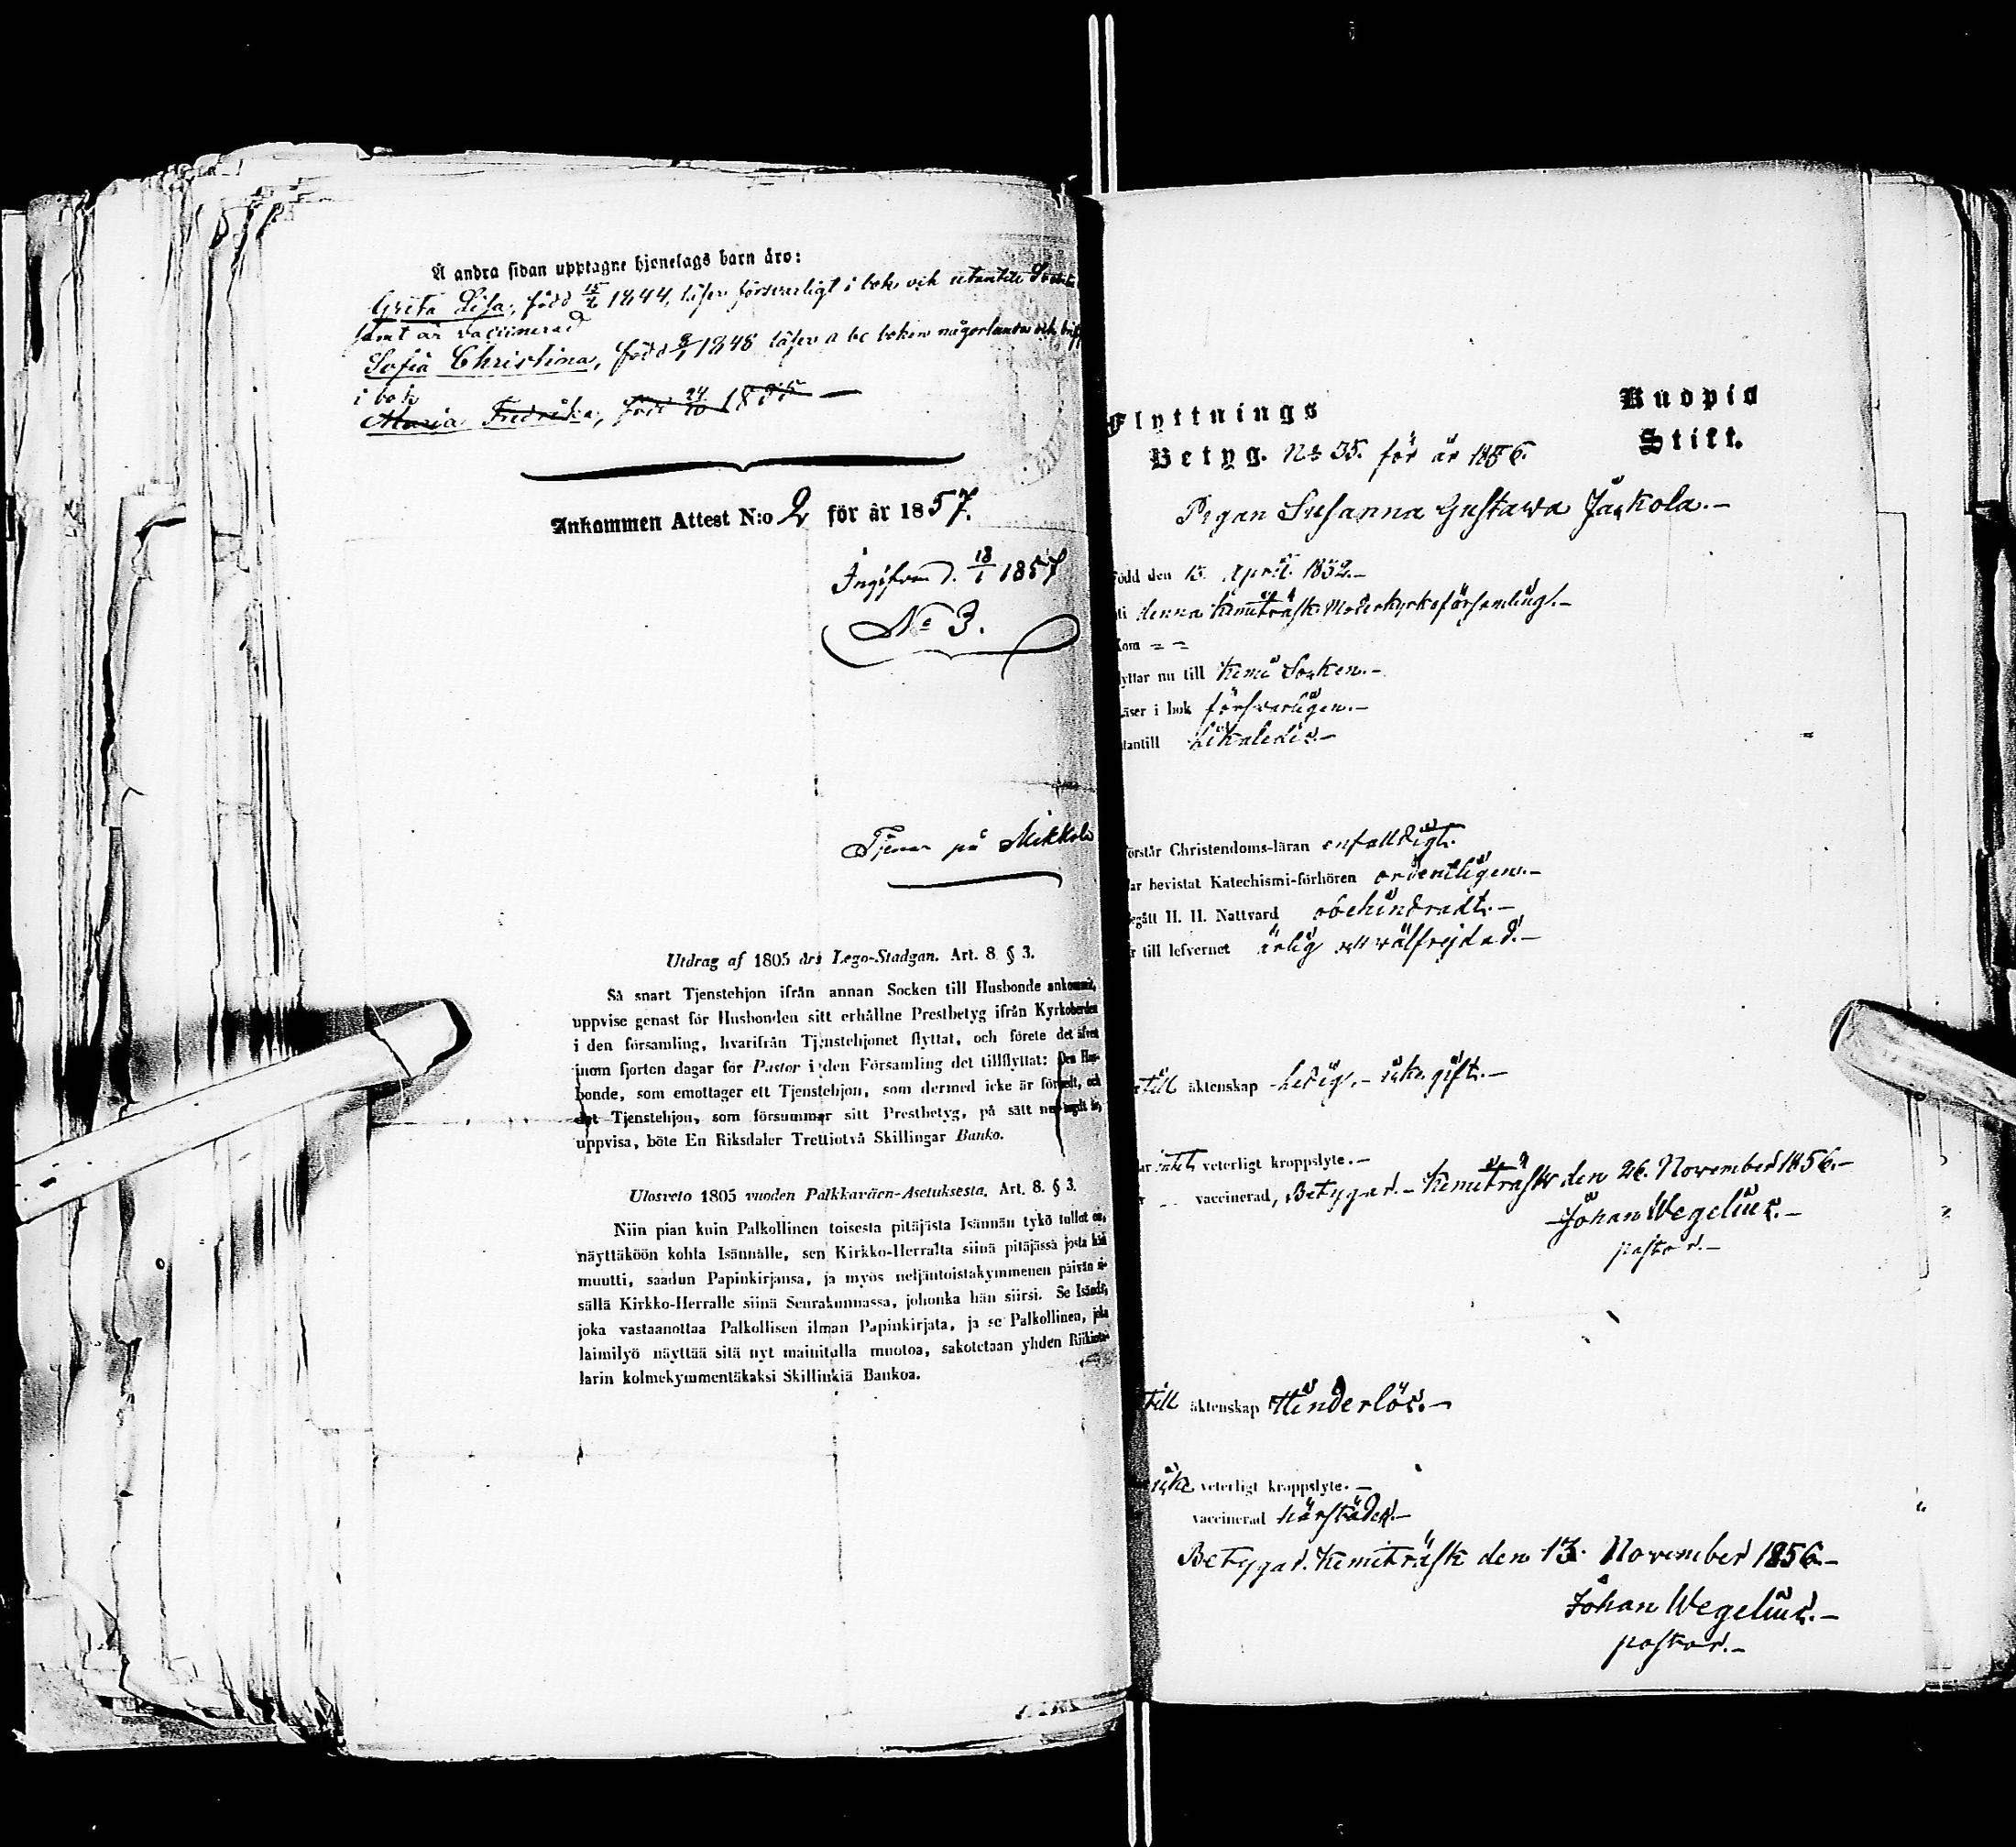 Å andra sidan upptagne hjonelags barn äro:
Greta Lisa, född 15/2 1844, läser försvarligt i bok och utantill
samt är vaccinerad
Sofia Christina, född 9/1 1848 läser a bc boken någorlunda och
i bok
Maria Fredrika, född 24/10 18
Ankommen Attest N:o 2 för år 1857.
Ingifven d. 18/1 1857
No 3.
Tjenar på Mikkola
Utdrag af 1805 års Lego-Stadgan. Art. 8 § 3.
Så snart Tjenstehjon ifrån annan Socken till Husbonde ankommit,
uppvise genast för Husbonden sitt erhållne Prestbetyg ifrån Kyrkoherden
i den församling, hvarifrån Tjenstehjonet flyttat, och förete det äfven
inom fjorton dagar för Pastor i den Församling det tillflyttat: Den Hus-
bonde, som emottager ett Tjenstehjon, som dermed icke är försedt, och
det Tjenstehjon, som försummar sitt Prestbetyg, på sätt nu sagdt är,
uppvisa, böte En Riksdaler Trettiotvå Skillingar Banko.
Ulosveto 1805 vuoden Palkkaväen-Asetuksesta. Art. 8. § 3.
Niin pian kuin Palkollinen toisesta pitäjästa Isännän tykö tullut on,
näyttäköön kohta Isännälle, sen Kirkko-Herralta siinä pitäjässä josta hän
muutti, saadun Papinkirjansa, ja myös neljäntoistakymmenen päivän si-
sällä Kirkko-Herralle siinä Seurakunnassa, johonka hän siirsi. Se Isändä,
joka vastaanottaa Palkollisen ilman Papinkirjata, ja se Palkollinen, joka
laimilyö näyttää sitä nyt mainitulla muotoa, sakotetaan yhden Riikinta-
larin kolmekymmentäkaksi Skillinkiä Bankoa.
Flyttnings
Kuopio
Betyg. No 35. för år 1856.
Stift.
Pigan Susanna Gustava Jaakola.-
född den 15. April. 1832.-
ti denna Kemiträsk Moderkyrkoförsamling.-
kom = =
lyttar nu till Kemi Socken.-
äser i bok försvarligen.-
tantill Likaledes.-
örstår Christendoms-läran enfaldigt.
ar bevistat Katechismi-förhören ordentligen.-
egått H. H. Nattvard obehindradt.-
r till lefvernet ärlig och välfrejdad.-
till äktenskap ledig.- icke gift.-
ar intet veterligt kroppslyte.-
vaccinerad, Betygar.- Kemiträsk den 26. November 1856.-
Johan Wegelius.-
pastor.-
till äktenskap Hinderlös.-
icke veterligt kroppslyte.-
vaccinerad härstädes.-
Betygar. Kemiträsk den 13. November 1856.-
Johan Wegelius.-
pastor.-